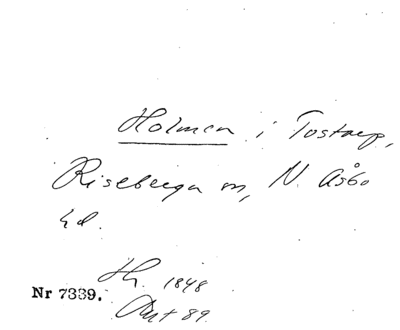 Holmen i Tostarp,
Riseberga sn, N. Åsbo
hd.
Hg. 1848
Nr 7339.
Ant 89.